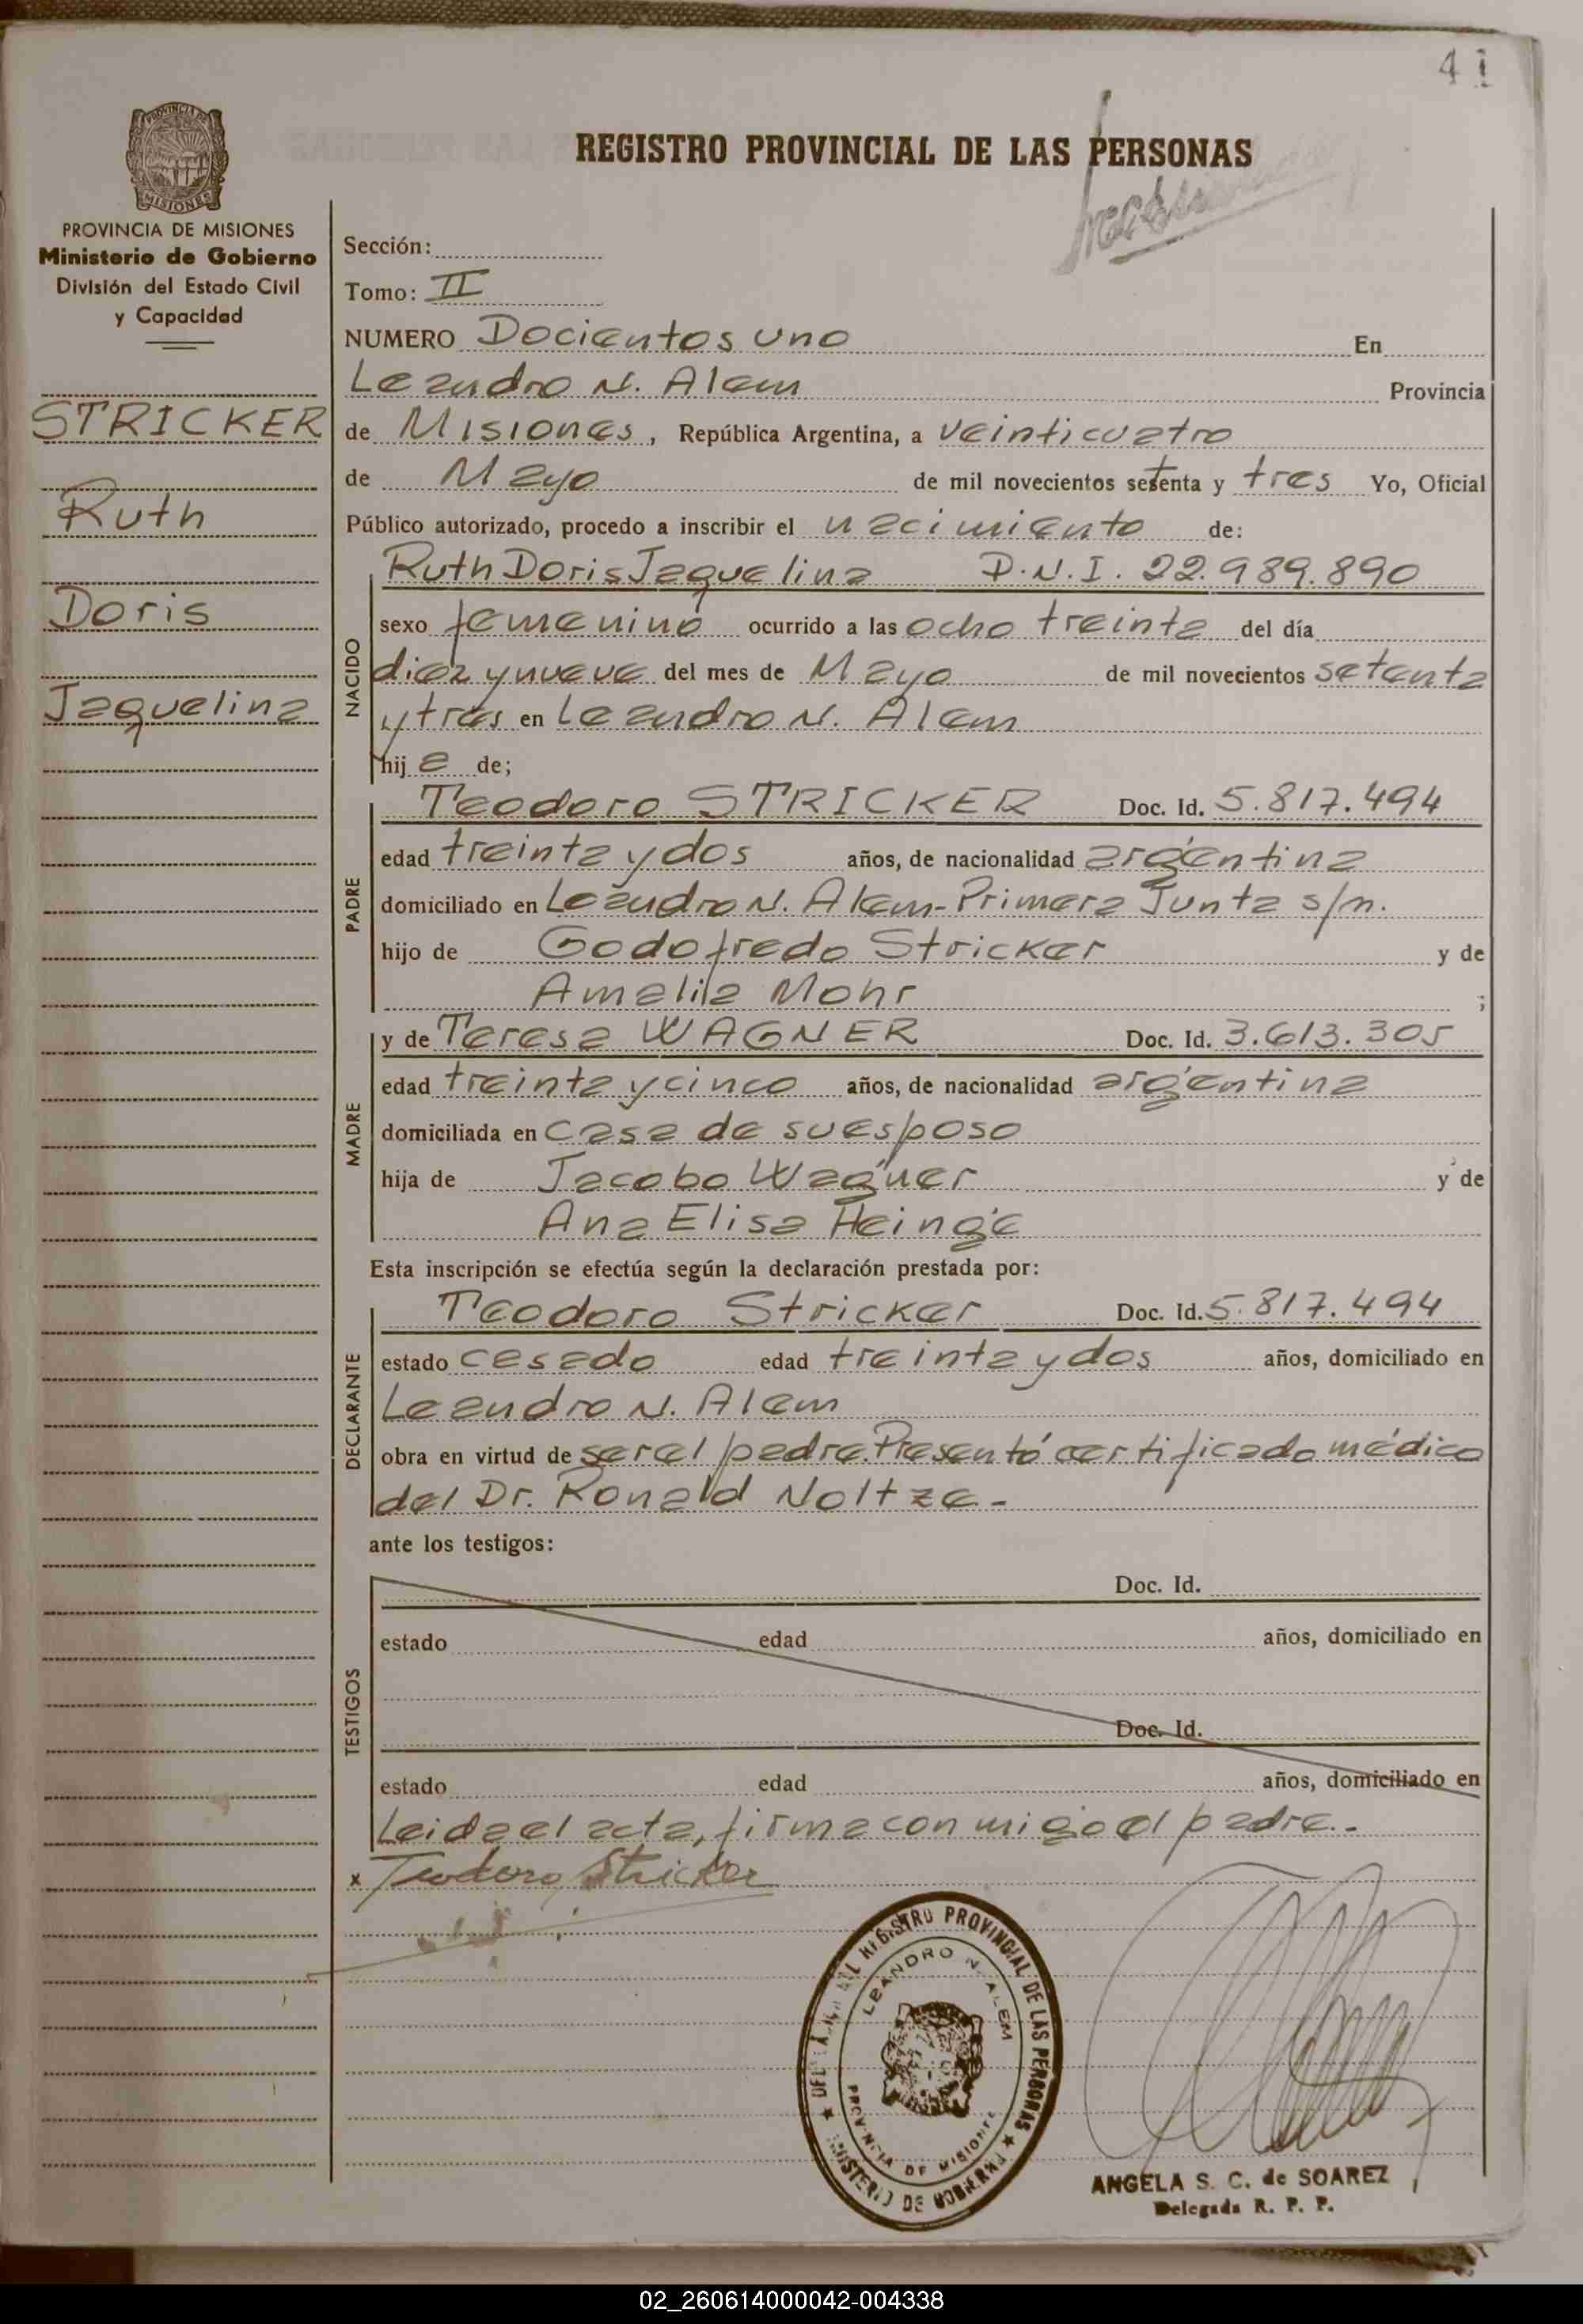 41
REGISTRO PROVINCIAL DE LAS PERSONAS
PROVINCIA DE MISIONES
MISIONES
PROVINCIA DE MISIONES
Ministerio de Gobierno
División del Estado Civil
y Capacidad
STRICKER
Ruth
Doris
Jaquelina
Sección:
Tomo: II
NUMERO Docientos uno En
Leandro N. Alem Provincia
de Misiones, República Argentina, a veinticuatro
de Mayo de mil novecientos setenta y tres Yo, Oficial
Público autorizado, procedo a inscribir el nacimiento de:
NACIDO
Ruth Doris Jaquelina D.N.I. 22.989.890
sexo femenino ocurrido a las ocho treinta del día
diez y nueve del mes de Mayo de mil novecientos setenta
y tres en Leandro N. Alem
hij a de;
PADRE
Teodoro STRICKER Doc. Id. 5.817.494
edad treinta y dos años, de nacionalidad argentina
domiciliado en Leandro N. Alem-Primera Junta s/n.
hijo de Godofredo Stricker y de
Amalia Mohr ;
MADRE
y de Teresa WAGNER Doc. Id. 3.613.305
edad treinta y cinco años, de nacionalidad argentina
domiciliada en casa de su esposo
hija de Jacobo Wagner y de
Ana Elisa Heinge
Esta inscripción se efectúa según la declaración prestada por:
DECLARANTE
Teodoro Stricker Doc. Id. 5.817.494
estado casado edad treinta y dos años, domiciliado en
Leandro N. Alem
obra en virtud de ser el padre. Presentó certificado médico
del Dr. Ronald Noltze.-
ante los testigos:
TESTIGOS
Doc. Id.
estado edad años, domiciliado en
Doc. Id.
estado edad años, domiciliado en
Leida el acta, firma conmigo el padre.-
x Teodoro Stricker
REGISTRO PROVINCIAL DE LAS PERSONAS
LEANDRO N. ALEM
PROVINCIA DE MISIONES
MINISTERIO DE GOBIERNO
ANGELA S. C. de SOAREZ
Delegada R. P. P.
02_260614000042-004338